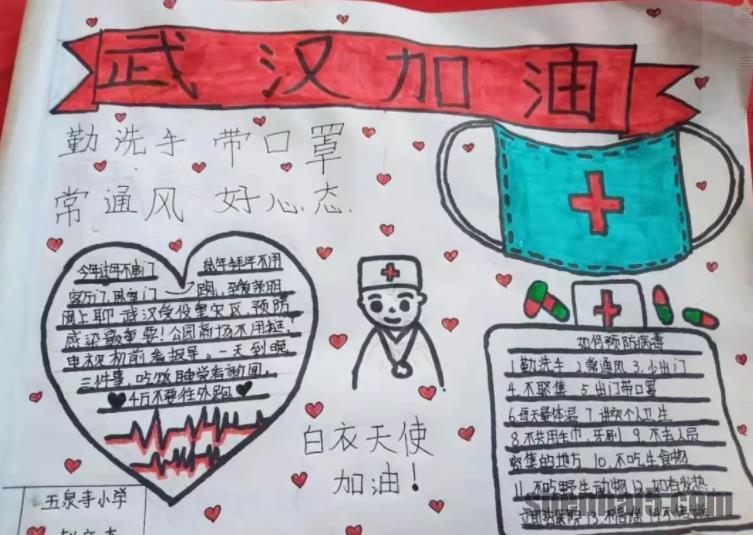 武汉加油
勤洗手 带口罩
常通风 好心态
今年过年不串门
网上聊 武汉受役重灾区,预防
感染最重要!公园商场不用逛,
电视机前看报导。一天到晚
三件事,吃饭睡觉看新闻,
千万不要往外跑
白衣天使
加油!
如何预防病毒
1勤洗手 2.常通风 3.少出门
4.不聚集 5出门带口罩
6每天量体温 7.讲究个人卫生
8.不共用毛巾、牙刷 9.不去人员
密集的地方 10.不吃生食物
11.不吃野生动物 12.如有发热
五泉寺小学